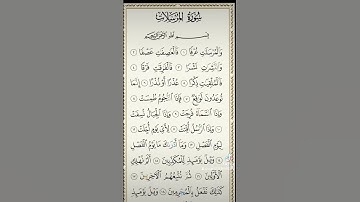 سُورَةُ الْمُرْسَلَاتِ
بِسْمِ اللَّهِ الرَّحْمَٰنِ الرَّحِيمِ
وَالْمُرْسَلَاتِ عُرْفًا ١ فَالْعَاصِفَاتِ عَصْفًا ٢
وَالنَّاشِرَاتِ نَشْرًا ٣ فَالْفَارِقَاتِ فَرْقًا ٤
فَالْمُلْقِيَاتِ ذِكْرًا ٥ عُذْرًا أَوْ نُذْرًا ٦ إِنَّمَا
تُوعَدُونَ لَوَاقِعٌ ٧ فَإِذَا النُّجُومُ طُمِسَتْ
٨ وَإِذَا السَّمَاءُ فُرِجَتْ ٩ وَإِذَا الْجِبَالُ نُسِفَتْ
١٠ وَإِذَا الرُّسُلُ أُقِّتَتْ ١١ لِأَيِّ يَوْمٍ أُجِّلَتْ ١٢
لِيَوْمِ الْفَصْلِ ١٣ وَمَا أَدْرَاكَ مَا يَوْمُ الْفَصْلِ
١٤ وَيْلٌ يَوْمَئِذٍ لِّلْمُكَذِّبِينَ ١٥ أَلَمْ نُهْلِكِ
الْأَوَّلِينَ ١٦ ثُمَّ نُتْبِعُهُمُ الْآخِرِينَ ١٧
كَذَٰلِكَ نَفْعَلُ بِالْمُجْرِمِينَ ١٨ وَيْلٌ يَوْمَئِذٍ